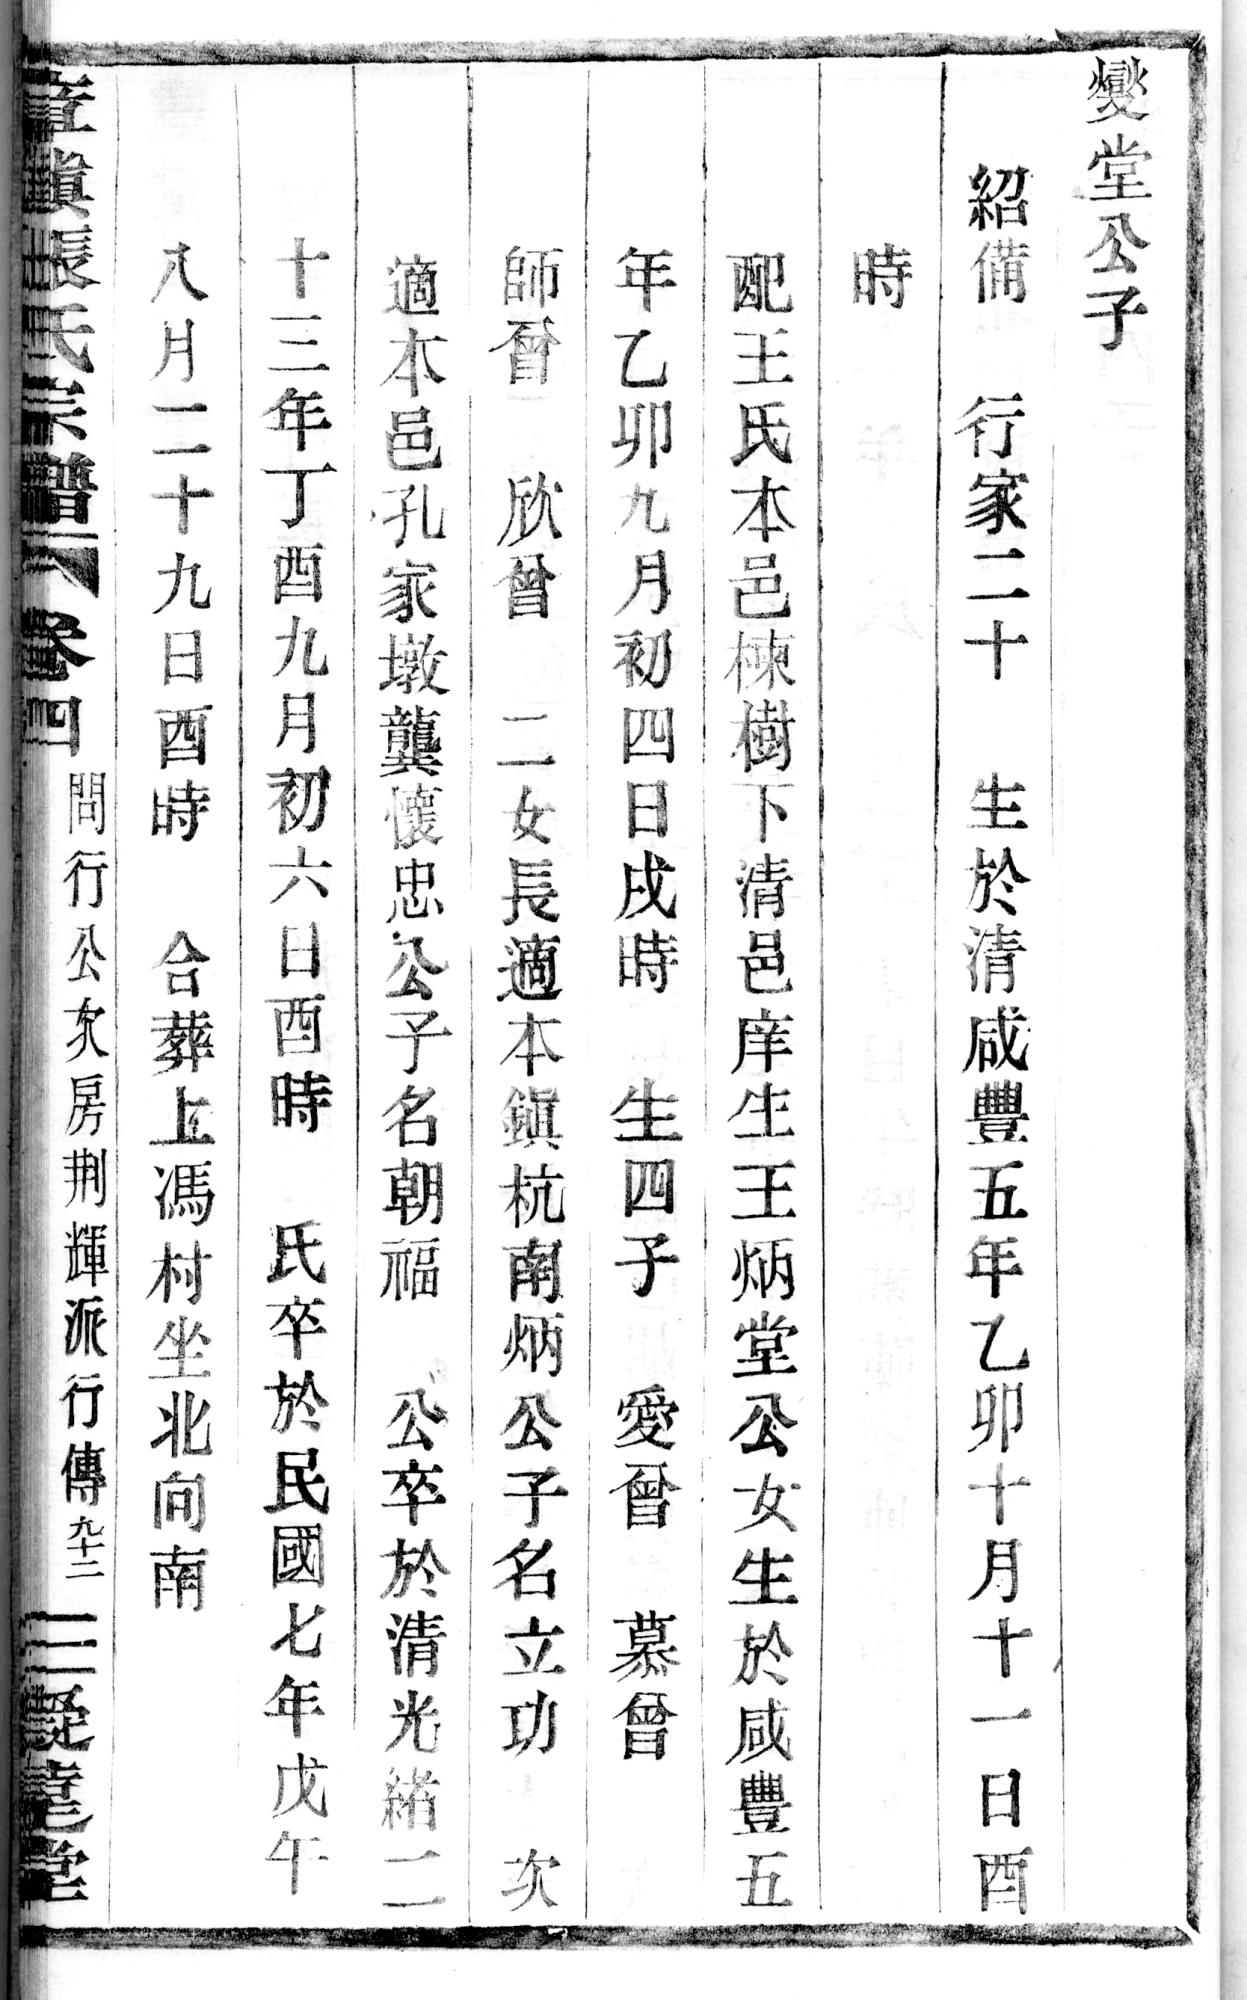 燮堂公子
紹備　行家二十　生於清咸豐五年乙卯十月十一日酉
時
配王氏本邑楝樹下清邑庠生王炳堂公女生於咸豐五
年乙卯九月初四日戌時　生四子　愛曾　慕曾
師曾　欣曾　二女長適本鎮杭南炳公子名立功　次
適本邑孔家墩龔懷忠公子名朝福　公卒於清光緒二
十三年丁酉九月初六日酉時　氏卒於民國七年戊午
八月二十九日酉時　合葬上馮村坐北向南
章鎮張氏宗譜　卷四　問行公次房荆輝派行傳九十二　三凝堂